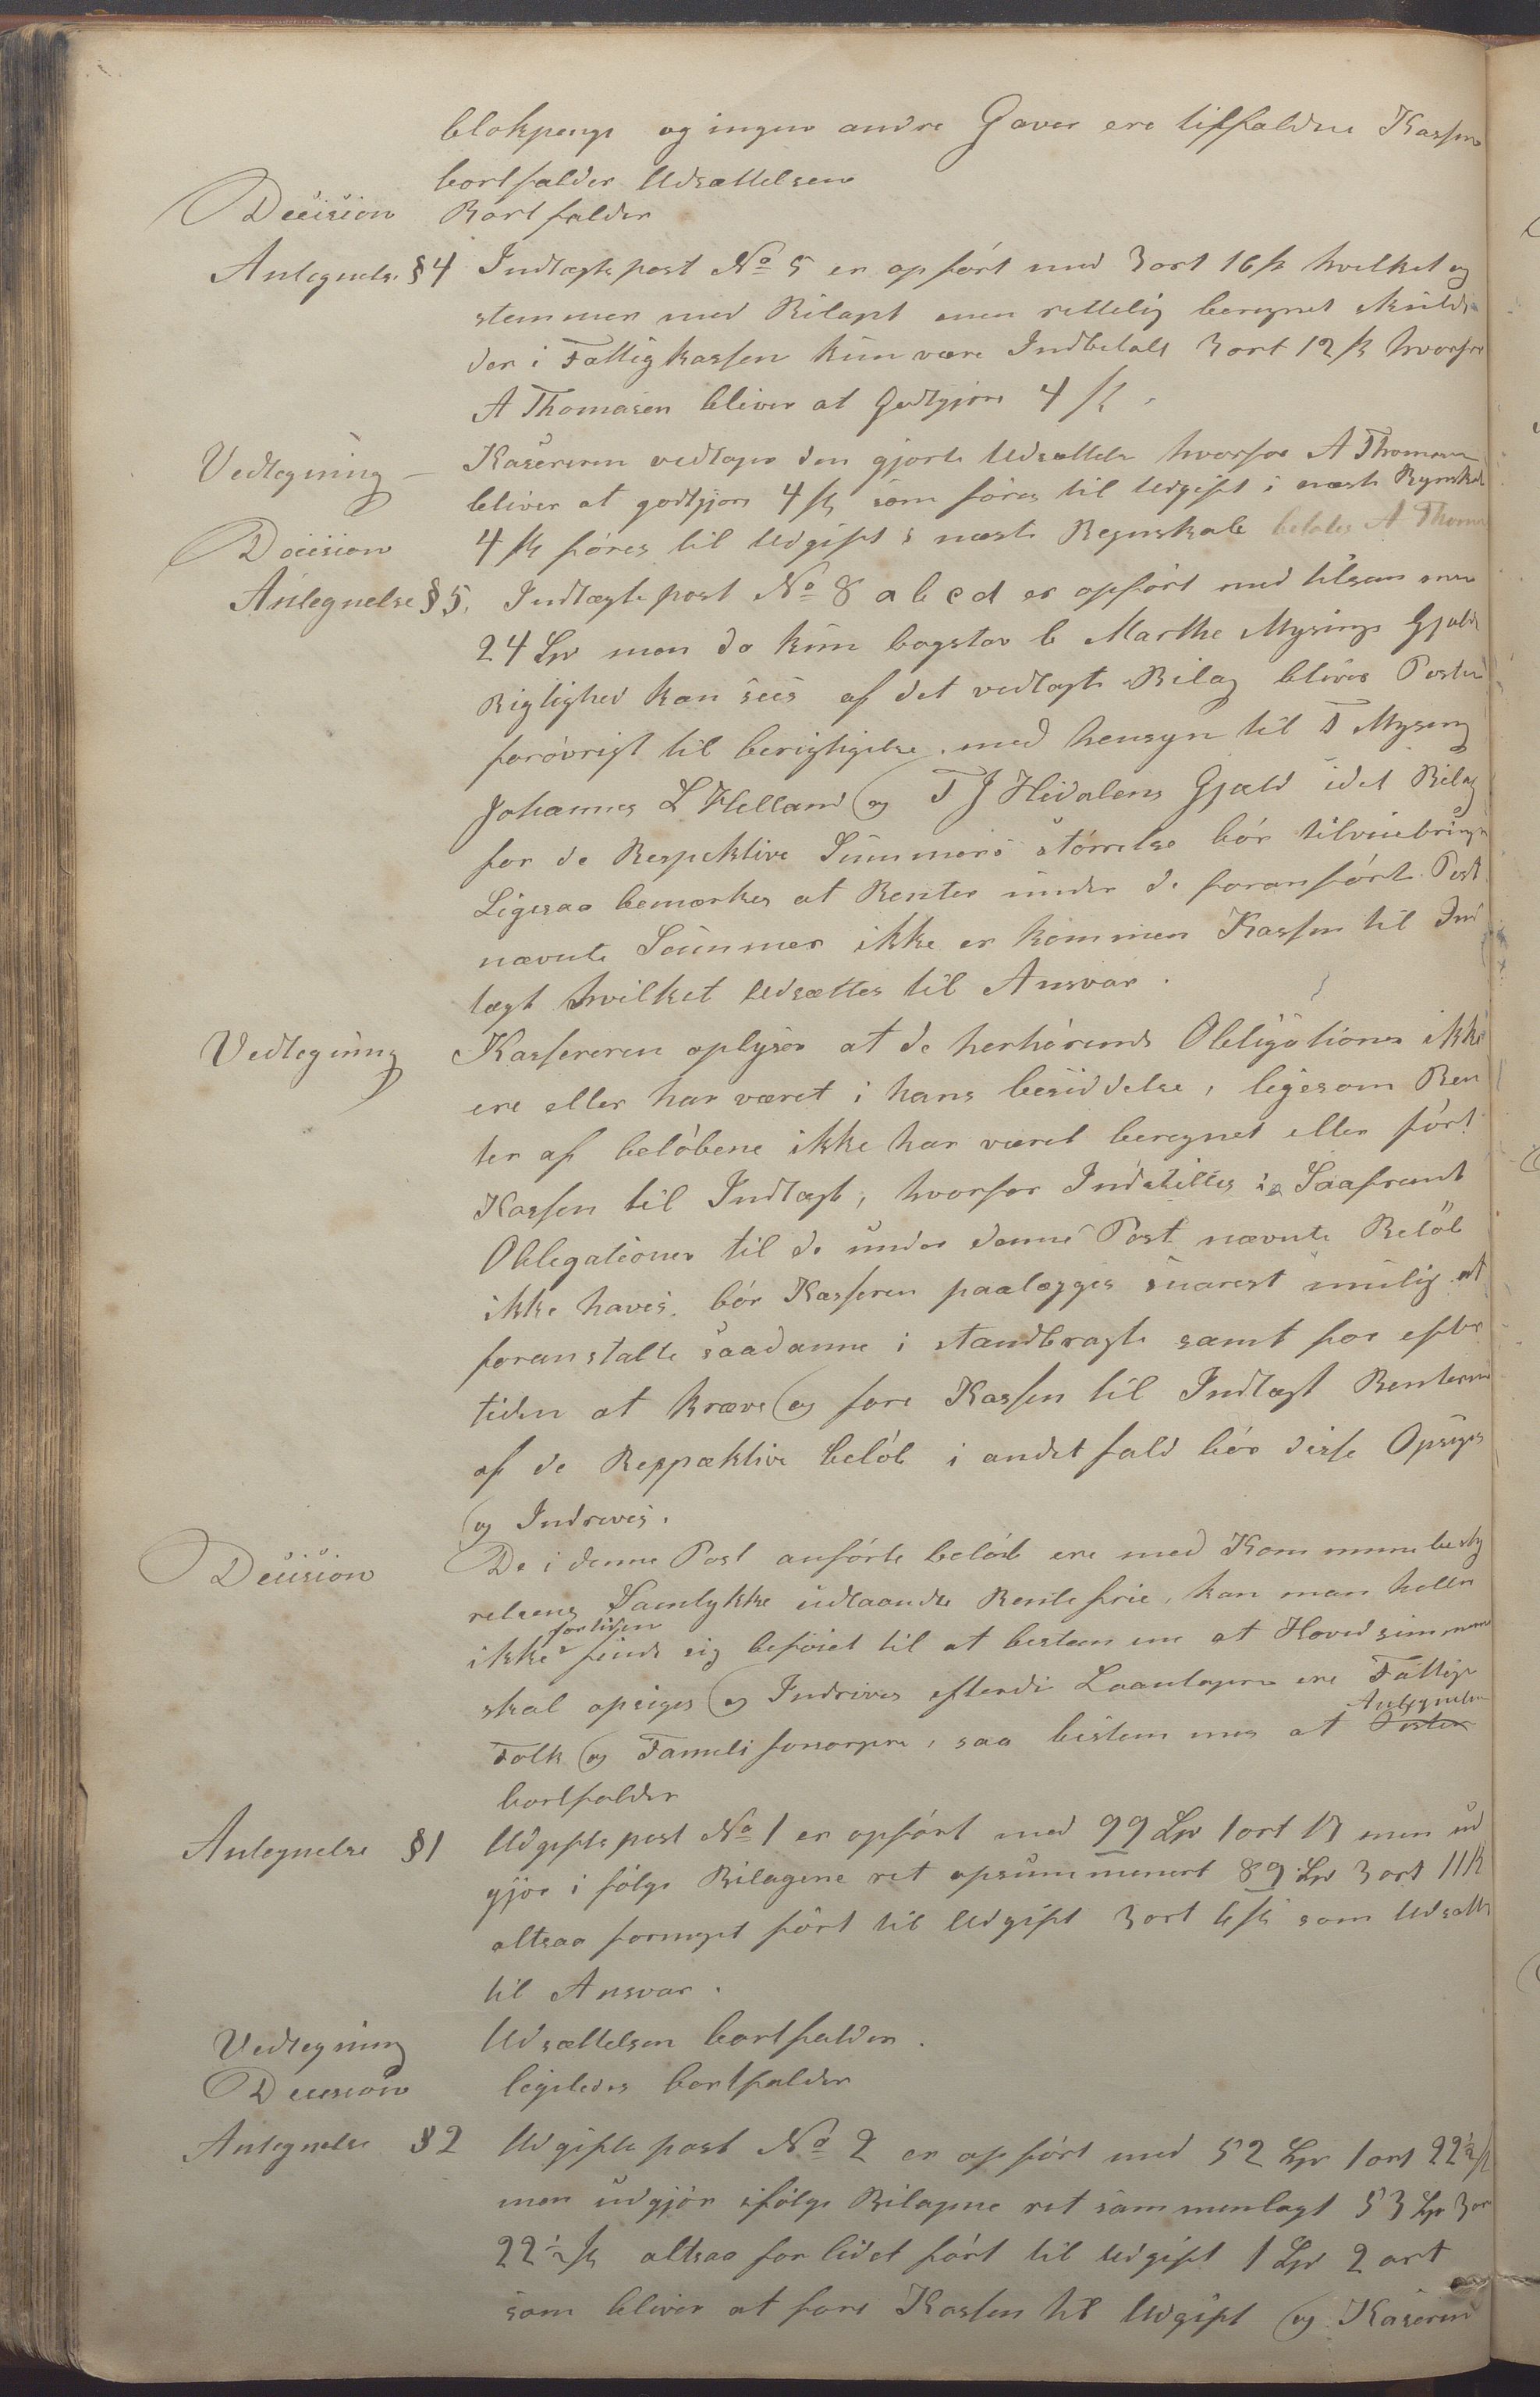 blokpenge og ingen andre Gaver ere tilfaldne Kassen
bortfalder Udsættelsen
Decision Bortfalder
Antegnelse §4 Indtægtspost No 5 er opført med 3 ort 16 ß hvilket og
stemmer med Bilaget men rettelig beregnet skulde
der i Fattigkassen kun være Indbetalt 3 ort 12 ß hvorfor
A Thomasen bliver at Godtgjøre 4 ß.
Vedtegning – Kasereren vedtager den gjorte Udsættelse hvorfor A Thomasen
bliver at godtgjøre 4 ß som føres til Udgift i næste Regnskab
Decision 4 ß føres til Udgift i næste Regnskab betales A Thom
Antegnelse §5. Indtægtspost No 8 a b c d er opført med tilsammen
24 Spd men da kun bogstav b Marthe Mysings Gjælds
Rigtighed kan sees af det vedlagte Bilag bliver Posten
forøvrigt til berigtigelse med hensyn til T Mysing
Johannes L Helland og T J Hidalens Gjæld idet Bilag
for de Respektive Summers størrelse bør tilveiebringes
Ligesaa bemærkes at Renter under de foranførte Post
nævnte Summer ikke er kommen Kassen til Ind
tægt hvilket Udsættes til Ansvar.
Vedtegning Kassereren oplyser at de herhørende Obligationer ikke
ere eller har været i hans besiddelse, ligesom Ren
ter af beløbene ikke har været beregnet eller ført
Kassen til Indtægt, hvorfor Indstilles Saafremt
Oblegationer til de under denne Post nævnte Beløb
ikke haves, bør Kasseren paalægges snarest mulig at
foranstalte saadanne i standbragte samt for efter
tiden at kræve og føre Kassen til Indtægt Renterne
af de Reppæktive beløb i andet fald bør disse Opsiges
og Indrives.
Decision De i denne Post anførte beløb ere med Kommunebesty
relsens Samtykke udlaande Rentefrie, kan man heller
ikke fortiden finde sig beføiet til at bestemme at Hovedsummen
skal opsiges og Indrives efterdi Laantagerne ere Fattige
Folk og Familieforsørgere, saa bestemmes at Posten Antegnelsen
bortfalder
Antegnelse §1 Udgiftspost No 1 er opført med 99 Spd 1 ort 17 men ud
gjør i følge Bilagene ret opsummeret 89 Spd 3 ort 11 ß
altsaa formeget ført til Udgift 3 ort 6 ß som Udsættes
til Ansvar.
Vedtegning Udsættelsen bortfalder.
Decision ligeledes bortfalder
Antegnelse §2 Udgiftspost No 2 er opført med 52 Spd 1 ort 22½ ß
men udgjør ifølge Bilagene ret sammenlagt 53 Spd 3 or
22½ ß altsaa for lidet ført til Udgift 1 Spd 2 ort
som bliver at føre Kassen til Udgift og Kaseren